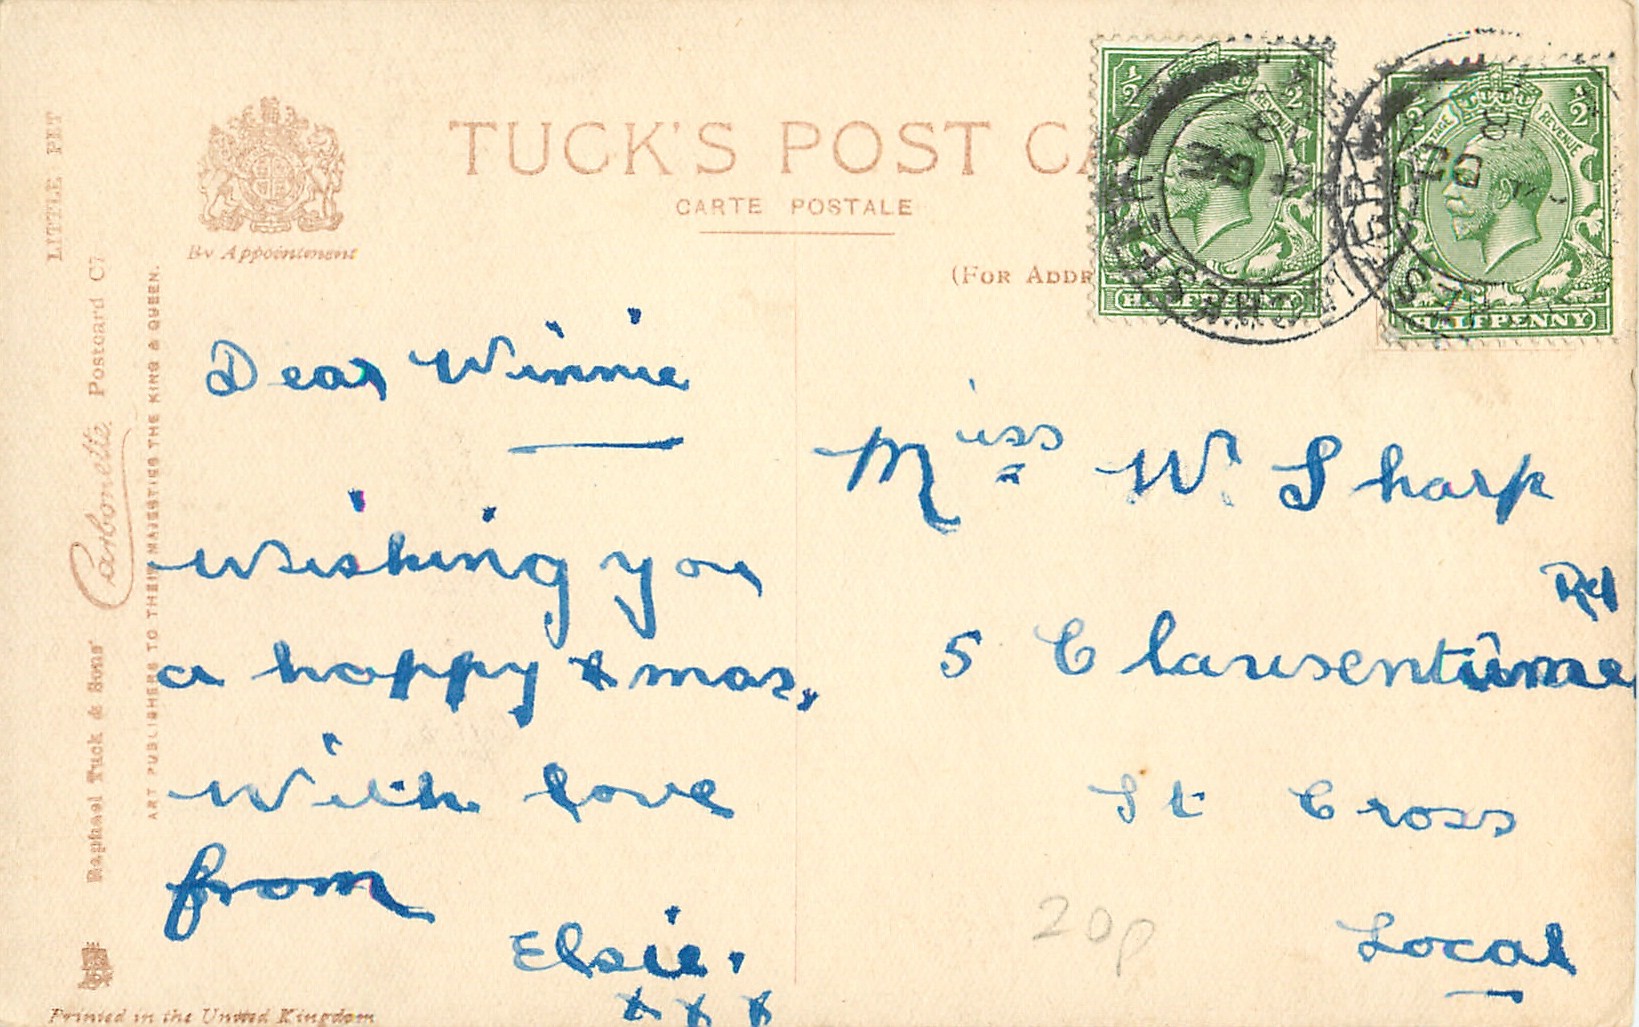 TUCK'S POST
CARTE POSTALE
By Appointment
(FOR
LITTLE PET
Raphael Tuck & Sons' Carbonette Postcard C7
ART PUBLISHERS TO THEIR MAJESTIES THE KING & QUEEN.
Printed in the United Kingdom
½ ½
REVENUE
HALFPENNY
18
½ ½
POSTAGE REVENUE
HALFPENNY
18
Dear Winnie
Wishing you
a happy Xmas,
With love
from
Elsie.
x x x
Miss W. Sharp
Rd
5 Clausentume
St Cross
Local
20p